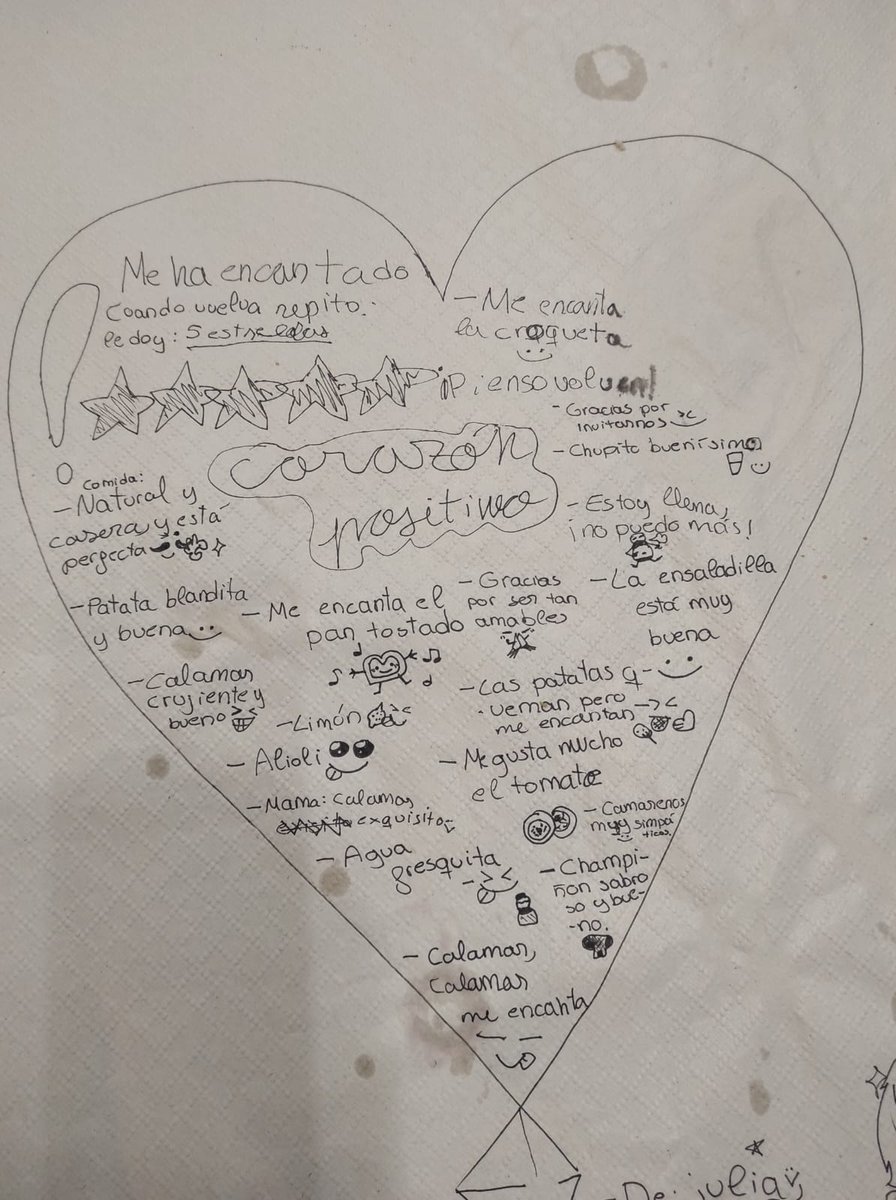 Me ha encantado
Cuando vuelva repito.
le doy: 5 estrellas
- Me encanta
la croqueta
¡Pienso volver!
- Gracias por
invitarnos
- Chupito buenísimo
corazón
positivo
Comida:
- Natural y
casera y está
perfecta
- Estoy llena,
¡no puedo más!
- Patata blandita
y buena
- Me encanta el
pan tostado
- Gracias
por ser tan
amables
- La ensaladilla
está muy
buena
- Calamar
crujiente y
bueno
- Limón
- Las patatas q
veman pero
me encantan
- Alioli
- Me gusta mucho
el tomate
- Mama: Calamar
exquisito
- Camareros
muy simpá
ticos
- Agua
fresquita
- Champi-
ñon sabro
so y bue-
-no.
- Calamar,
Calamar
me encanta
- De: julia